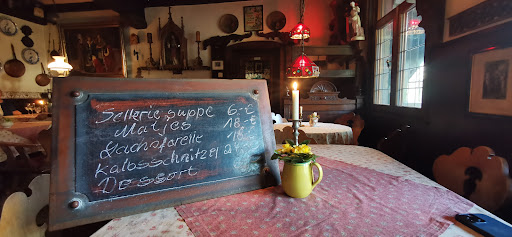 Selleriesuppe 6.-€
Matjes 18.-€
Lachsforelle
Kalbsschnitzel
Dessert